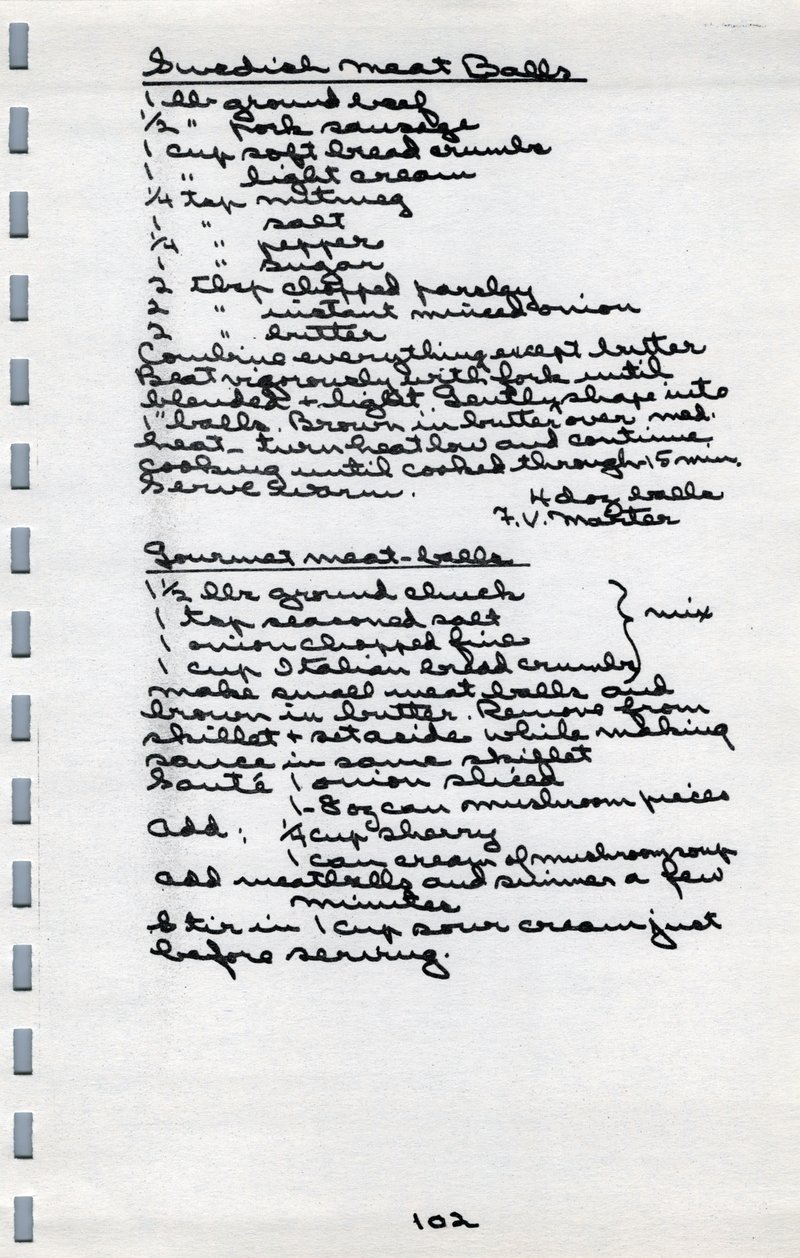 Swedish Meat Balls
1 lb ground beef
1/2 " pork sausage
1 cup soft bread crumbs
1 " light cream
1/4 tsp nutmeg
1 " salt
1/4 " pepper
1 " sugar
2 tbsp chopped parsley
2 " instant minced onion
2 " butter
Combine everything except butter
Beat vigorously with fork until
blended + light Gently shape into
1" balls. Brown in butter over med.
heat - turn heat low and continue
cooking until cooked through 15 min.
Serve warm.
4 doz balls
F.V. Marter
Gourmet meat-balls
1 1/2 lbs ground chuck
1 tsp seasoned salt
1 onion chopped fine
1 cup Italian bread crumbs
} mix
make small meat balls and
brown in butter. Remove from
skillet + set aside while making
sauce in same skillet
Sauté 1 onion sliced
1-8 oz can mushroom pieces
add: 1/4 cup sherry
1 can cream of mushroom soup
add meatballs and simmer a few
minutes
Stir in 1 cup sour cream just
before serving.
102